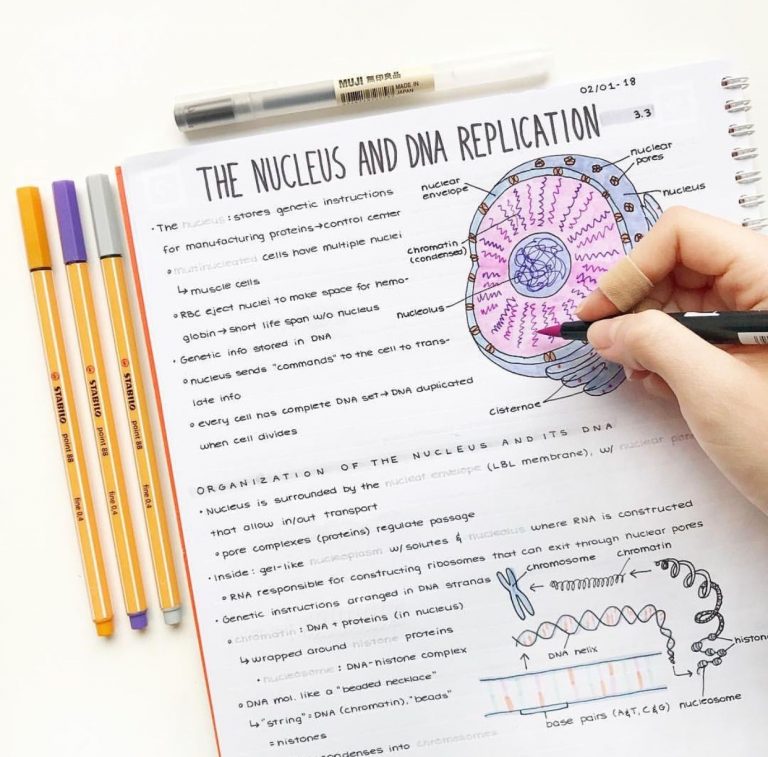 MUJI 無印良品
MADE IN
JAPAN
02/01-18
3.3
THE NUCLEUS AND DNA REPLICATION
• The nucleus: stores genetic instructions
for manufacturing proteins→control center
o multinucleated cells have multiple nuclei
↳ muscle cells
o RBC eject nuclei to make space for hemo-
globin→short life span w/o nucleus
• Genetic info stored in DNA
o nucleus sends "commands" to the cell to trans-
late info
o every cell has complete DNA set→DNA duplicated
when cell divides
nuclear
envelope
chromatin
(condensed)
nucleolus
nuclear
pores
nucleus
cisternae
ORGANIZATION OF THE NUCLEUS AND ITS DNA
• Nucleus is surrounded by the nuclear envelope (LBL membrane), w/ nuclear
that allow in/out transport
o pore complexes (proteins) regulate passage
• Inside: gel-like nucleoplasm w/solutes & nucleolus where RNA is constructed
o RNA responsible for constructing ribosomes that can exit through nuclear pores
• Genetic instructions arranged in DNA strands
o chromatin: DNA + proteins (in nucleus)
↳ wrapped around histone proteins
• nucleosome: DNA-histone complex
o DNA mol. like a "beaded necklace"
↳ "string"=DNA (chromatin), "beads"
=histones
condenses into chromosomes
chromosome
chromatin
DNA helix
histone
nucleosome
base pairs (A&T, C&G)
STABILO
point 88
fine 0,4
STABILO
point 88
fine 0,4
STABILO
point 88
fine 0,4